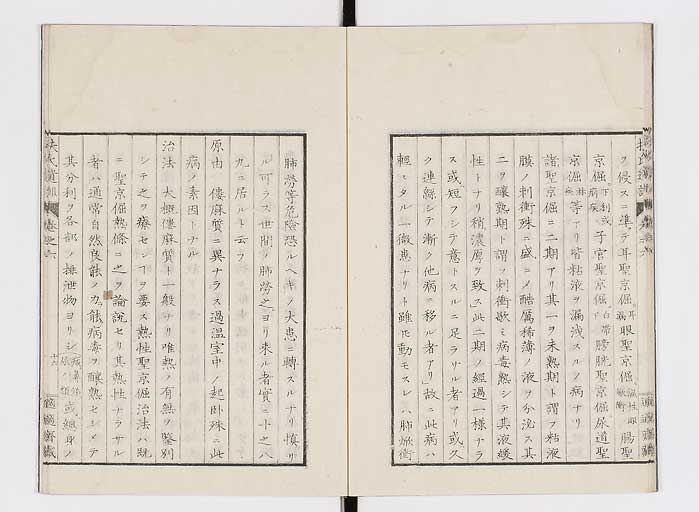 ヲ侵スニ準テ耳聖京倔 耳漏 眼聖京倔 腸聖
京倔 下利或 子宮聖京倔 白帯 膀胱聖京倔尿道聖
京倔 淋疾 等アリ皆粘液ヲ漏洩スルノ病ナリ
諸聖京倔ニ二期アリ其一ヲ未熟期ト謂フ粘液
膜ノ刺衝殊ニ盛ニノ酷厲稀薄ノ液ヲ分泌ス其
二ヲ醸熟期ト謂フ刺衝歇ミ病毒熟シテ其液緩
性トナリ稍濃厚ヲ致ス此二期ノ經過一様ナラ
ス或短フシテ意トスルニ足ラサル者アリ或久
ク連緜シテ漸ク他病ニ移ル者アリ故ニ此病ハ
輕ミタル一微患ナリト雖𪜈動モスレハ肺焮衝
肺勞等危險恐ルヘキノ大患ニ轉スルナリ慎リ
ル可ラス世間ノ肺勞之ヨリ来ル者實ニ十之八
九ニ居ルト云ラ
原由 僂麻質ニ異ナラス過温室中ノ起臥殊ニ此
病ノ素因トナル
治法 大概僂麻質ト一般ナリ唯熱ノ有無ヲ鑒別
シテ之ヲ療センヿヲ要ス熱性聖京倔治法ハ既
ニ聖京倔熱條ニ之ヲ論說セリ其熱性ナラサル
者ハ通常自然良能ノ力能病毒ヲ醸熟セシメテ
其分利ヲ各部ノ排泄物ヨリシ 或細身ノ
扶氏遺訓
卷之六
十六
適適齋藏